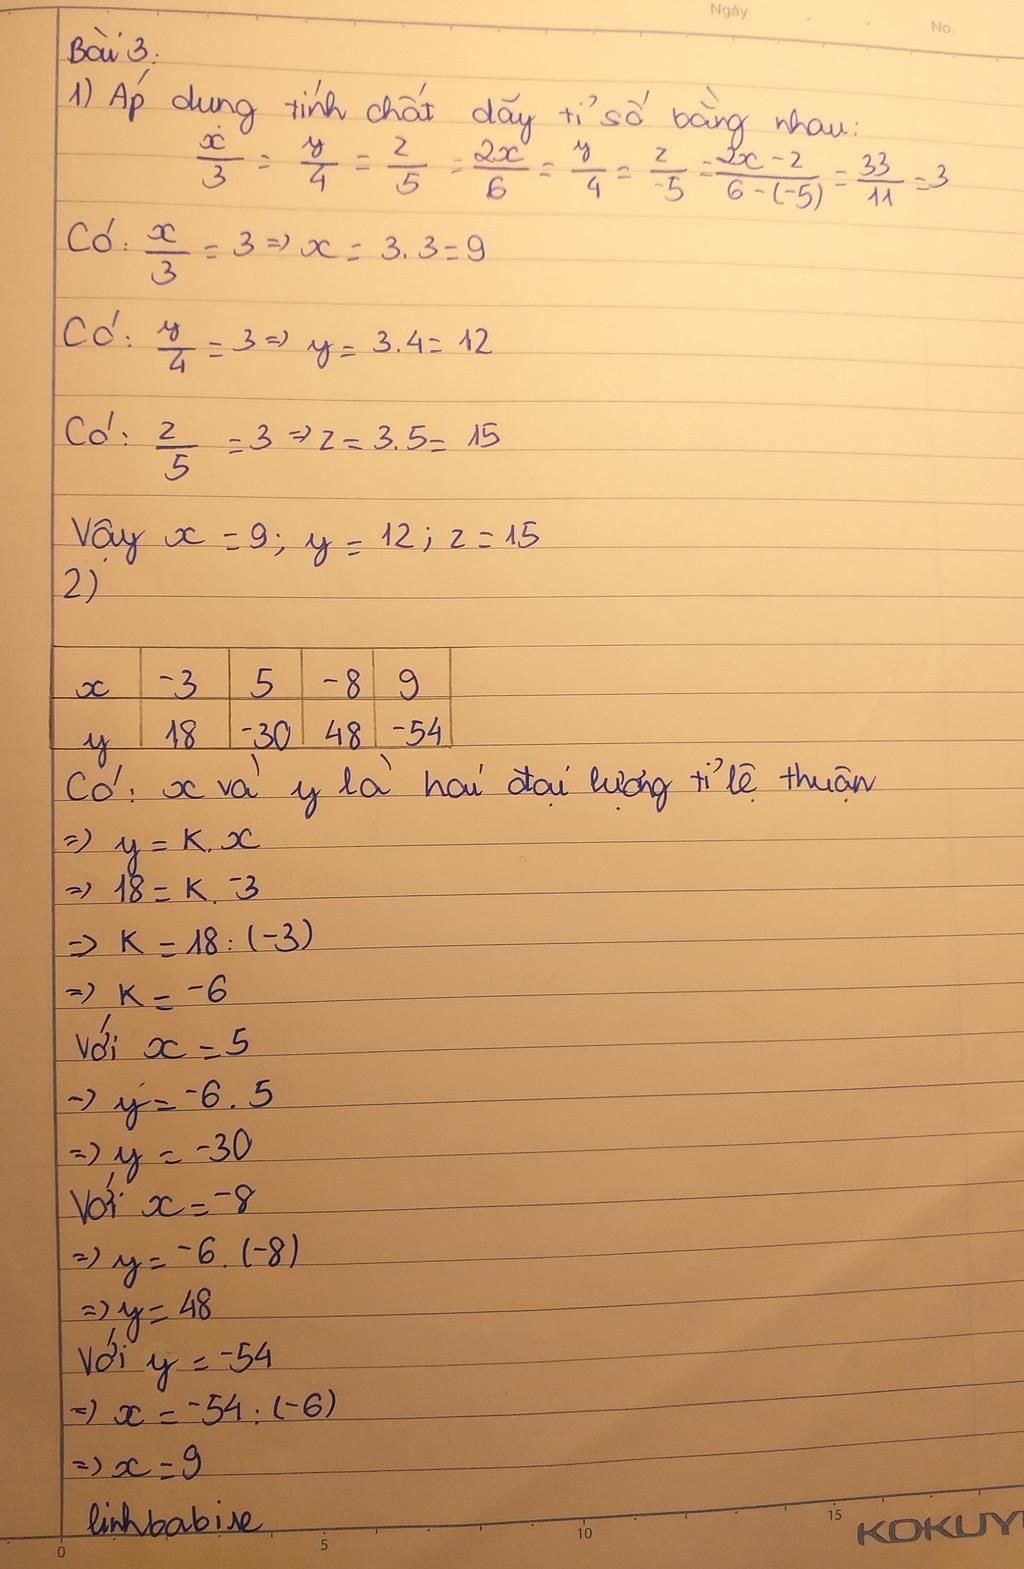 Ngày
No.
Bài 3:
1) Áp dung tính chất dãy tỉ số bằng nhau:
x/3 = y/4 = z/5 = 2x/6 = y/4 = z/-5 = 2x-z/6-(-5) = 33/11 = 3
Có: x/3 = 3 => x = 3.3 = 9
Có: y/4 = 3 => y = 3.4 = 12
Có: z/5 = 3 => z = 3.5 = 15
Vậy x = 9; y = 12; z = 15
2)
x -3 5 -8 9
y 18 -30 48 -54
Có: x và y là hai đại lượng tỉ lệ thuận
=> y = K.x
=> 18 = K.-3
=> K = 18:(-3)
=> K = -6
Với x = 5
=> y = -6.5
=> y = -30
Với x = -8
=> y = -6.(-8)
=> y = 48
Với y = -54
=> x = -54:(-6)
=> x = 9
linhbabise
0 5 10 15
KOKUY